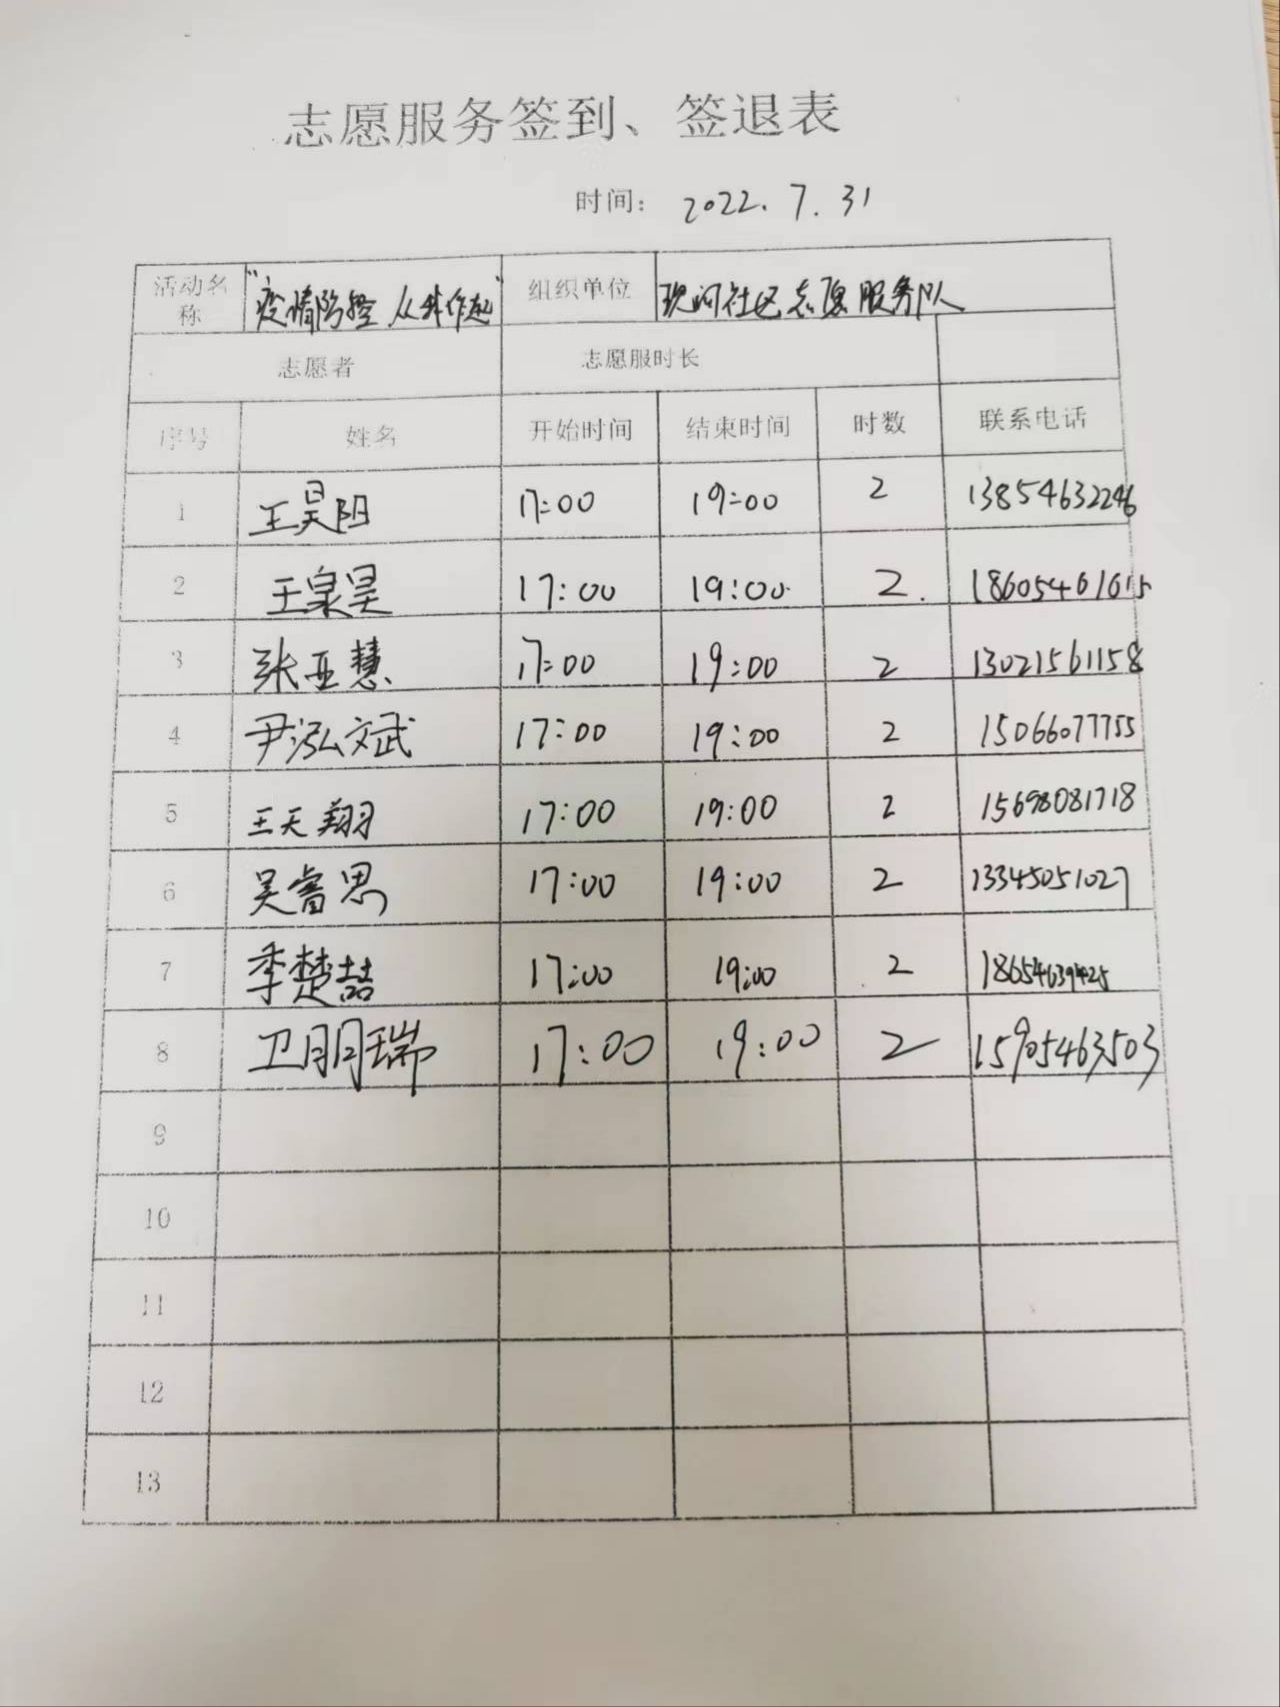 志愿服务签到、签退表
时间: 2022.7.31
活动名称 "疫情防控 从我作起" 组织单位 社区志愿服务队
志愿者 志愿服时长
序号 姓名 开始时间 结束时间 时数 联系电话
1 王昊阳 17:00 19:00 2 13854632246
2 王泉昊 17:00 19:00 2. 18605461615
3 张亚慧 17:00 19:00 2 13021561158
4 尹泓文斌 17:00 19:00 2 15066077755
5 王天翔 17:00 19:00 2 15698081718
6 吴睿思 17:00 19:00 2 13345051027
7 季楚喆 17:00 19:00 2 18654639425
8 卫朋瑞 17:00 19:00 2 15905463503
9
10
11
12
13